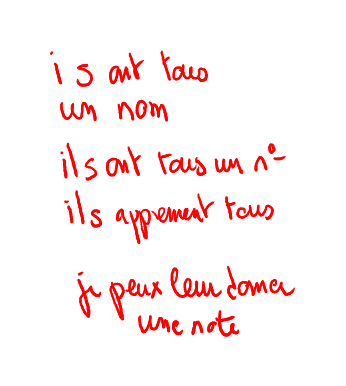 i s ont tous
un nom
ils ont tous un n°
ils apprement tous
je peux leur donner
une note